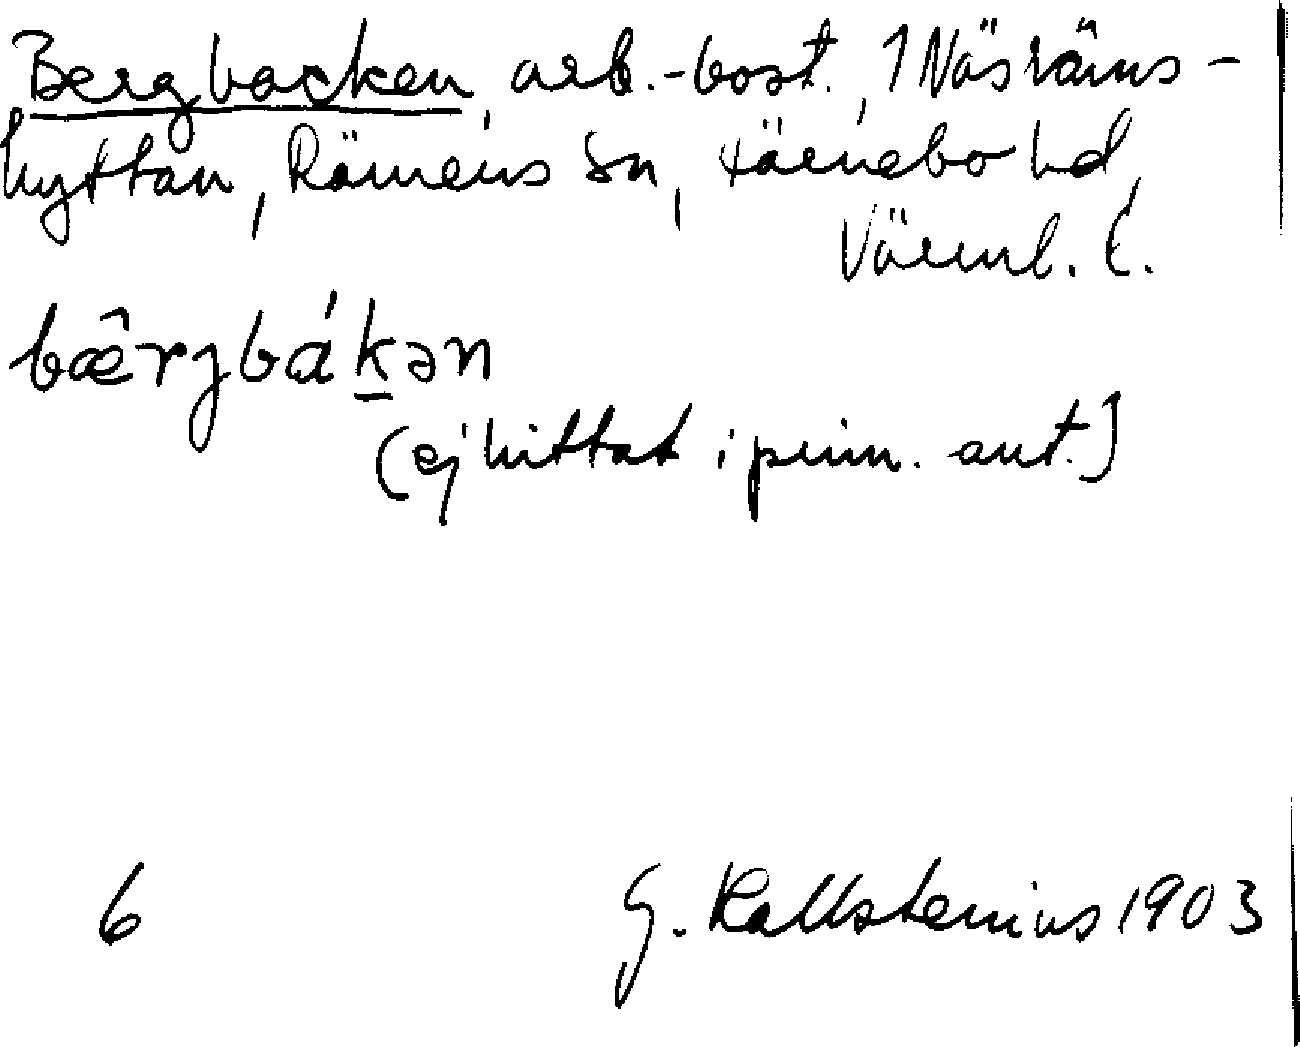 Bergbacken, arb.-bost., 1 Näsräms-
hyttan, Rämens sn, Färnebo hd,
Värml. l.
bæ̂rgbák̲ən
(ej hittat i prim. ant.)
6 G. Kallstenius 1903